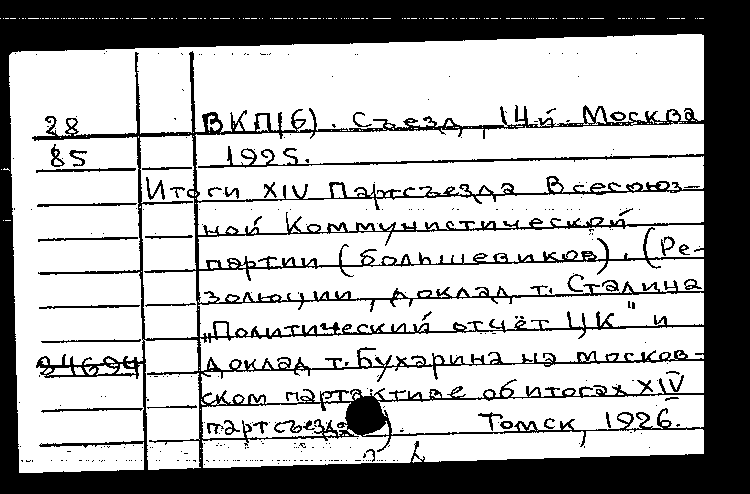 28 ВКП(б). Съезд, 14й. Москва
85 1925.
Итоги XIV Партсъезда Всесоюз-
ной Коммунистической
партии (большевиков). (Ре-
золюции, доклад т. Сталина
„Политический отчёт ЦК" и
24694 доклад т. Бухарина на москов-
ском партактиве об итогах XIV
партсъезда). Томск, 1926.